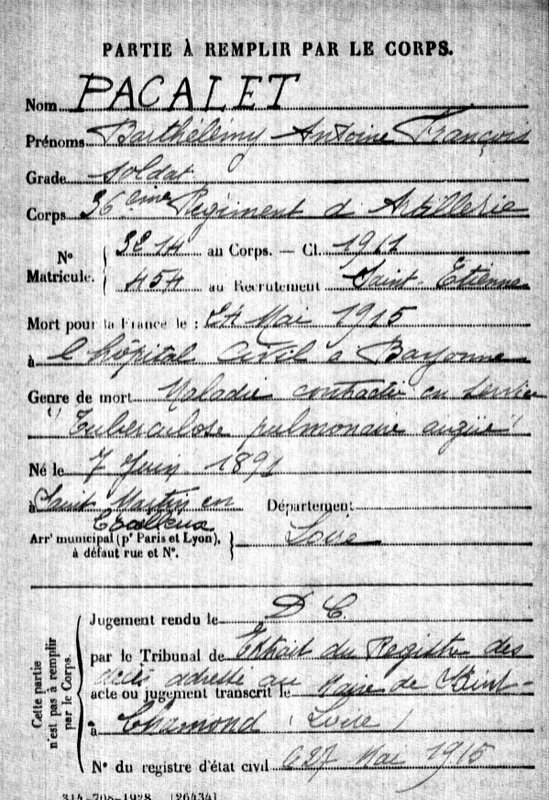 PARTIE À REMPLIR PAR LE CORPS.
Nom PACALET
Prénoms Barthélémy Antoine François
Grade soldat
Corps 36ème Régiment d'Artillerie
N° Matricule. 3214 au Corps. — Cl. 1911
454 au Recrutement Saint-Etienne
Mort pour la France le : 24 Mai 1915
à l'hôpital Civil à Bayonne
Genre de mort Maladie contractée en service
"Tuberculose pulmonaire aigüe"
Né le 7 Juin 1891
à Saint Martin en Coailleux Département
Arrt municipal (pr Paris et Lyon), à défaut rue et N°. Loire
Cette partie n'est pas à remplir par le Corps.
Jugement rendu le D C
par le Tribunal de Extrait du Registre des
décès adressé au
acte ou jugement transcrit le Maire de Saint-
à Chamond (Loire)
N° du registre d'état civil 27 Mai 1915
314-708-1928. [26434]